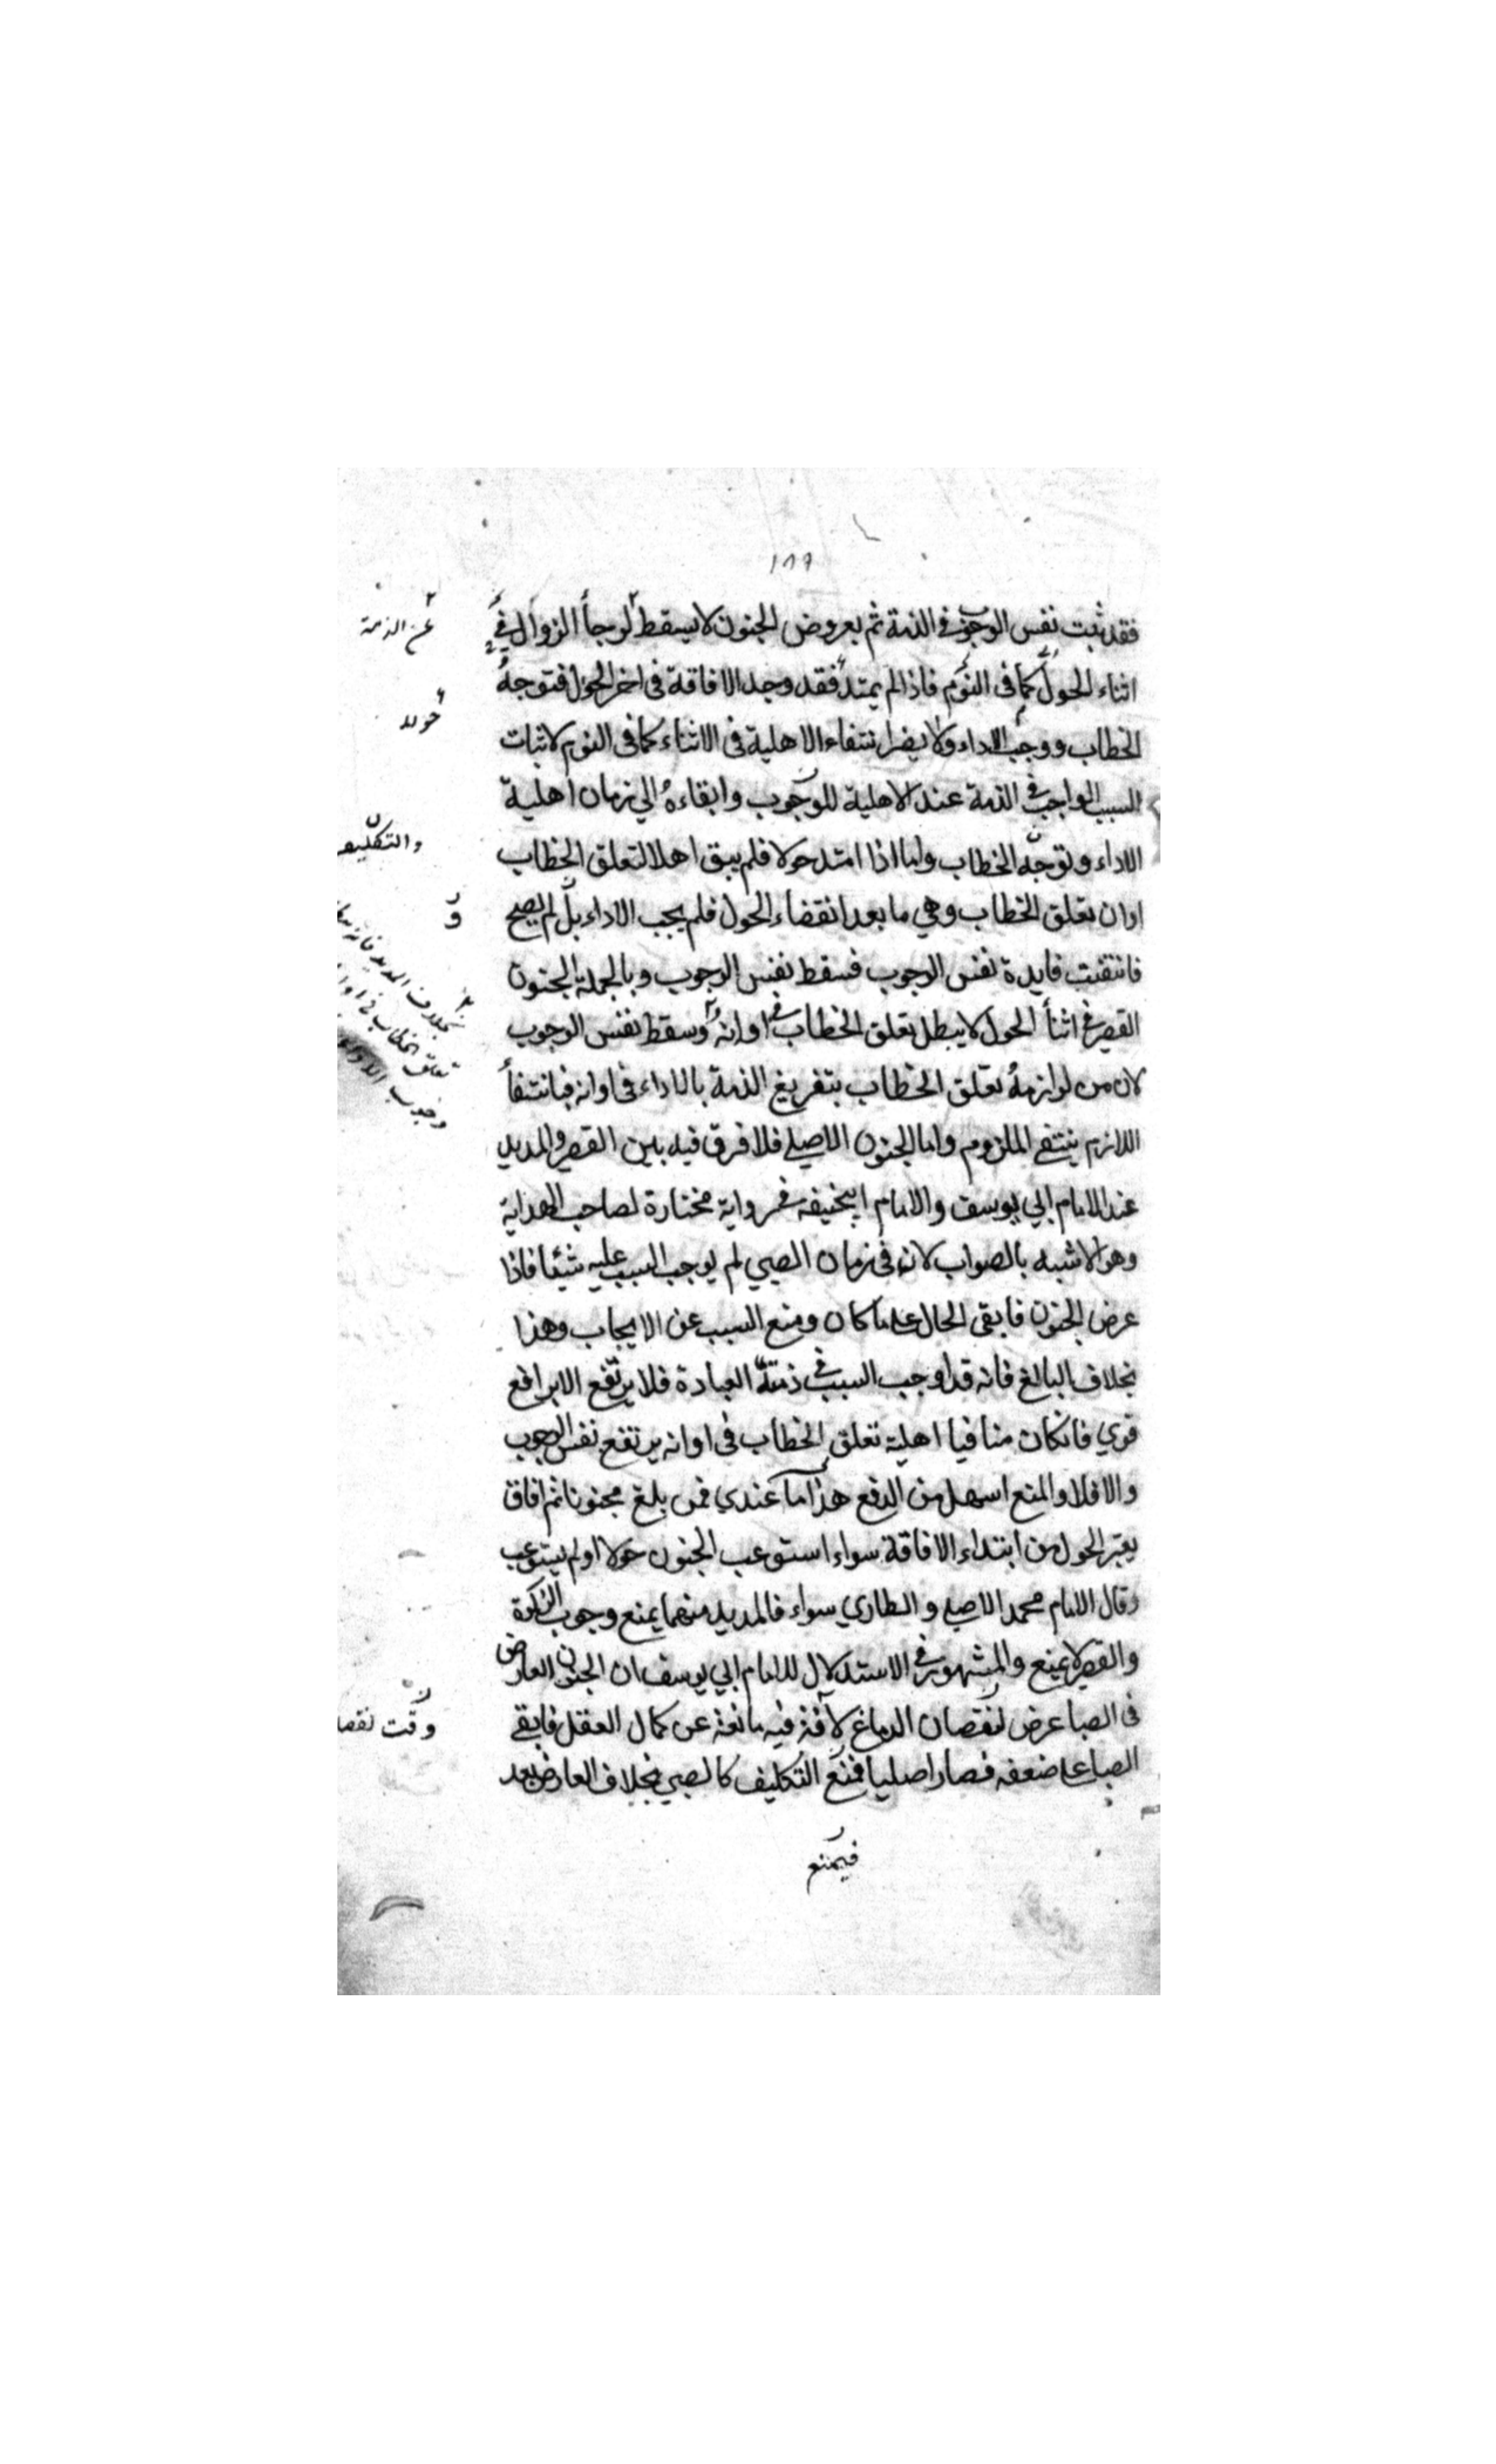 ١٨٩
فقد ثبت نفس الوجوب في الذمة ثم بعروض الجنون لا يسقط لرجأ الزوال في
عن الذمة
اثناء الحول كما في النوم فاذا لم يمتد فقد وجد الافاقة في اخر الحول فتوجه
حولا
الخطاب ووجب الاداء ولا يضر انتفاء الاهلية في الاثناء كما في النوم لاثبات
السبب الواجب في الذمة عند الاهلية للوجوب وابقاءه الي زمان اهلية
الاداء وتوجه الخطاب واما اذا امتد حولا فلم يبق اهلا لتعلق الخطاب
والتكليف
اوان تعلق الخطاب وهي ما بعد انقضاء الحول فلم يجب الاداء بل لم يصح
و
فانتفت فايدة نفس الوجوب فسقط نفس الوجوب وبالجملة الجنون
القصير في اثنأ الحول لا يبطل تعلق الخطاب في اوانه وسقط نفس الوجوب
بخلاف المديد فانه
تعلق الخطاب في
وجوب
لان من لوازمه تعلق الخطاب بتفريغ الذمة بالاداء في اوانه فبانتفأ
اللازم ينتفي الملزوم واما الجنون الاصلي فلا فرق فيه بين القصير والمديد
عند الامام ابي يوسف والامام ابيحنيفه في رواية مختارة لصاحب الهداية
وهو الاشبه بالصواب لانه في زمان الصبي لم يوجب السبب عليه شيئا فاذا
عرض الجنون فابقى الحال على ما كان ومنع السبب عن الايجاب وهذا
بخلاف البالغ فانه قد اوجب السبب في ذمته العبادة فلا يرتفع الا برافع
قوي فانكان منافيا اهلية تعلق الخطاب في اوانه يرتفع نفس الوجوب
والا فلا والمنع اسهل من الدفع هذا ما عندي فمن بلغ مجنونا ثم افاق
يعتبر الحول من ابتداء الافاقة سواء استوعب الجنون حولا او لم يستوعب
وقال الامام محمد الاصلي والطاري سواء فالمديد منهما يمنع وجوب الزكوة
والقصير لا يمنع والمشهور في الاستدلال للامام ابي يوسف ان الجنون العارض
في الصبا عرض لنقصان الدماغ لآفة فيه مانعة عن كمال العقل فابقي
وقت نقصا
الصبا على ضعفه فصار اصليا فمنع التكليف كالصبي بخلاف العارض بعد
فيمنع